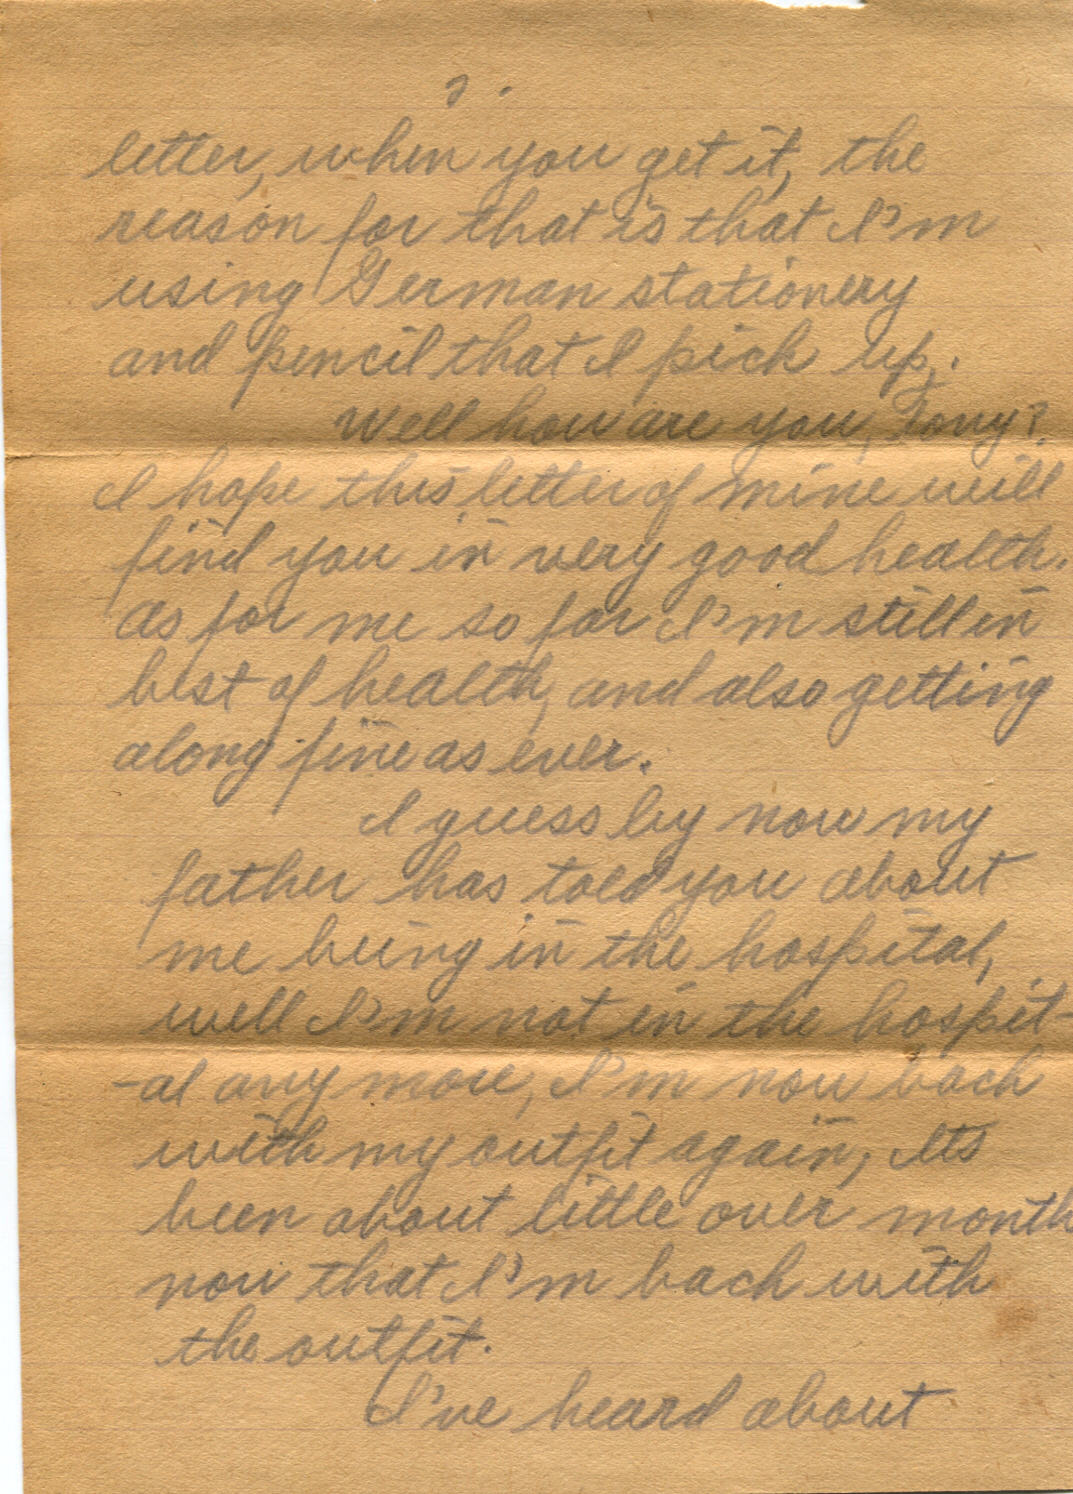 2.
letter, when you get it, the
reason for that is that I'm
using German stationery
and pencil that I pick up.
Well how are you, Tony?
I hope this letter of mine will
find you in very good health.
as for me so far I'm still in
best of health, and also getting
along fine as ever.
I guess by now my
father has told you about
me being in the hospital,
well I'm not in the hospit-
-al any more, I'm now back
with my outfit again, Its
been about little over month
now that I'm back with
the outfit.
I've heard about